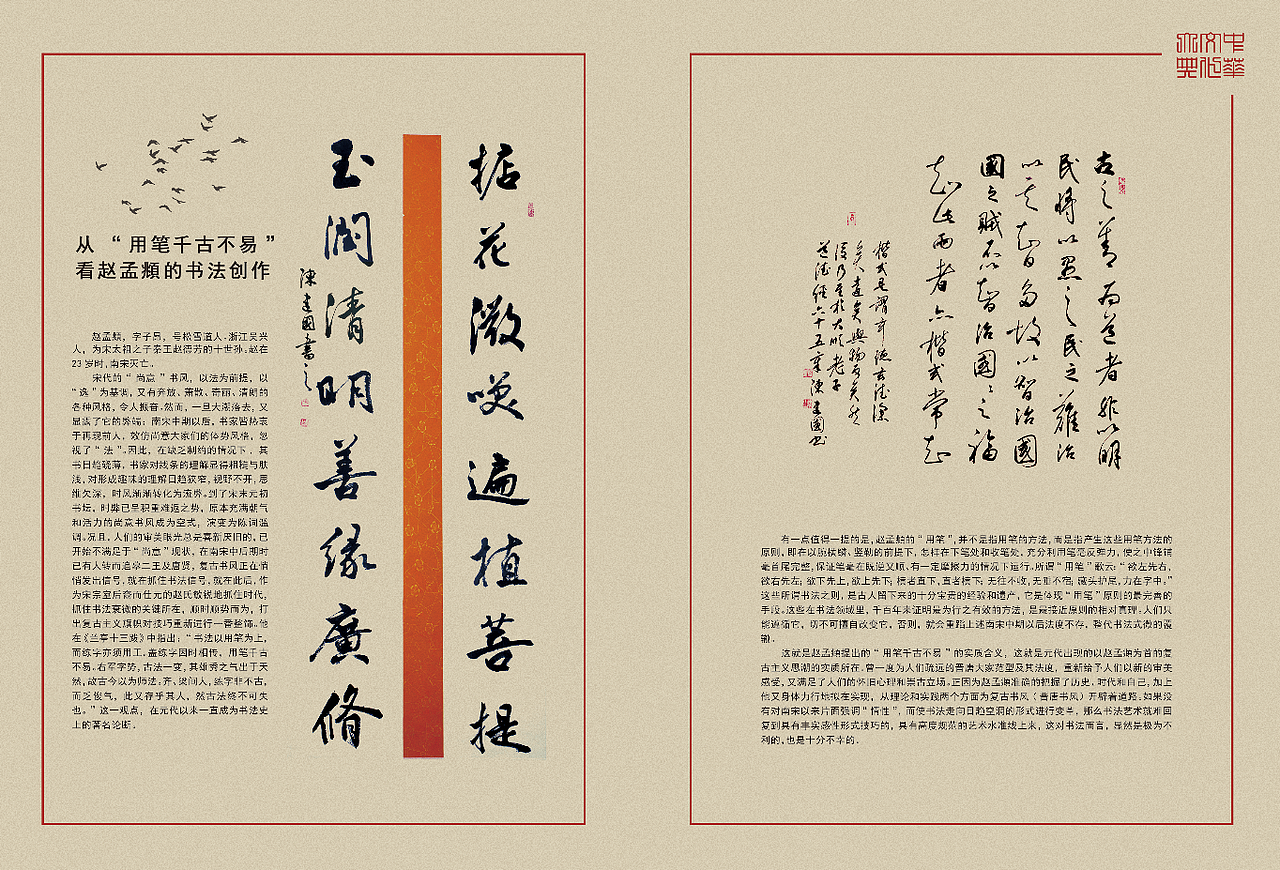 从“用笔千古不易”
看赵孟頫的书法创作
赵孟頫，字子昂，号松雪道人。浙江吴兴
人，为宋太祖之子秦王赵德芳的十世孙。赵在
23岁时，南宋灭亡。
宋代的“尚意”书风，以法为前提，以
“逸”为基调，又有奔放、萧散、奇丽、清朗的
各种风格，令人振奋。然而，一旦大潮落去，又
显露了它的弊端；南宋中期以后，书家皆热衷
于再现前人、效仿尚意大家们的体势风格，忽
视了“法”。因此，在缺乏制约的情况下，其
书日趋硗薄，书家对线条的理解显得粗糙与肤
浅，对形成趣味的理解日趋狭窄，视野不开，思
维欠深，时风渐渐转化为流弊。到了宋末元初
书坛，时弊已呈积重难返之势，原本充满朝气
和活力的尚意书风成为空式，演变为陈词滥
调。况且，人们的审美眼光总是喜新厌旧的，已
开始不满足于“尚意”现状，在南宋中后期时
已有人转而追崇二王及唐贤，复古书风正在悄
悄发出信号，就在抓住书法信号，就在此后，作
为宋宗室后裔而仕元的赵氏敏锐地抓住时代，
抓住书法衰微的关键所在，顺时顺势而为，打
出复古主义旗帜对技巧重新进行一番整饬。他
在《兰亭十三跋》中指出：“书法以用笔为上，
而练字亦须用工。盖练字因时相传，用笔千古
不易。右军字势，古法一变，其雄秀之气出于天
然，故古今以为师法。齐、梁间人，练字非不古，
而乏俊气，此又存乎其人，然古法终不可失
也。”这一观点，在元代以来一直成为书法史
上的著名论断。
拈花微咲遍植菩提
玉潤清明善緣廣脩
陳建國書之
中華
文化
大典
古之善為道者非以明
民將以愚之民之難治
以其智多故以智治國
國之賊不以智治國國之福
知此兩者亦楷式常知
楷式是謂玄德玄德深
矣遠矣與物反矣然
後乃至於大順老子
道德經六十五章陳建國書
有一点值得一提的是，赵孟頫的“用笔”，并不是指用笔的方法，而是指产生这些用笔方法的
原则，即在以腕肱膀、竖勒的前提下，怎样在下笔处和收笔处，充分利用笔毫反弹力，使之中锋铺
毫首尾完整，保证笔毫在既逆又顺、有一定摩擦力的情况下运行。所谓“用笔”歌云：“欲左先右，
欲右先左；欲下先上，欲上先下；横者直下，直者横下；无往不收，无垂不缩；藏头护尾，力在字中。”
这些所谓书法之则，是古人留下来的十分宝贵的经验和遗产，它是体现“用笔”原则的最完善的
手段。这些在书法领域里，千百年来证明最为行之有效的方法，是最接近原则的相对真理：人们只
能遵循它，切不可擅自改变它，否则，就会重蹈上述南宋中期以后法度不存，替代书法式微的覆
辙。
这就是赵孟頫提出的“用笔千古不易”的实质含义，这就是元代出现的以赵孟頫为首的复
古主义思潮的实质所在。曾一度为人们疏远的晋唐大家范型及其法度，重新给予人们以新的审美
感受，又满足了人们的怀旧心理和崇古立场。正因为赵孟頫准确的把握了历史、时代和自己，加上
他又身体力行地拟在实现，从理论和实践两个方面为复古书风（晋唐书风）开辟着道路。如果没
有对南宋以来片面强调“情性”，而使书法走向日趋空洞的形式进行变革，那么书法艺术就难回
复到具有丰实感性形式技巧的，具有高度规范的艺术水准线上来，这对书法而言，显然是极为不
利的，也是十分不幸的。